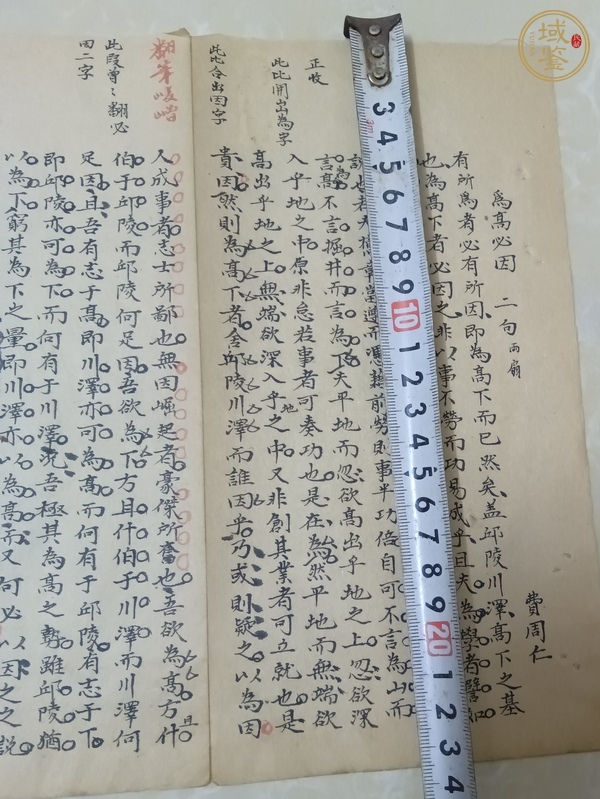 為高必因 二句 兩扇
費周仁
有所為者必有所因即為高下而已然矣蓋邱陵川澤高下之基
也為高下者必因之非以事不勞而功易成乎且夫為學者譬如
言高不言掘井而言為下夫平地而忽欲高出乎地之上忽欲深
入乎地之中原非怠若事者可奏功也是在為然平地而無端欲
高出乎地之上無端欲深入乎地之中又非創其業者可立就也是
貴因然則為高下者舍邱陵川澤而誰因乎乃或則疑之以為因
人成事者志士所鄙也無因崛起者豪傑所奮也吾欲為高方且什
伯于邱陵而邱陵何足因吾欲為下方且什伯于川澤而川澤何
足因且吾有志于高即川澤亦可為高而何有于邱陵有志于下
即邱陵亦可為下而何有于川澤況吾極其為高之勢雖邱陵猶
以為下窮其為下之量即川澤亦以為高而又何必以因之之說
正收
此比開出為字
此比合出因字
翻筆峻峭
此段曾翻必
因二字
3 4 5 6 7 8 9 10 1 2 3 4 5 6 7 8 9 20 1 2 3 4
3m
域鑒